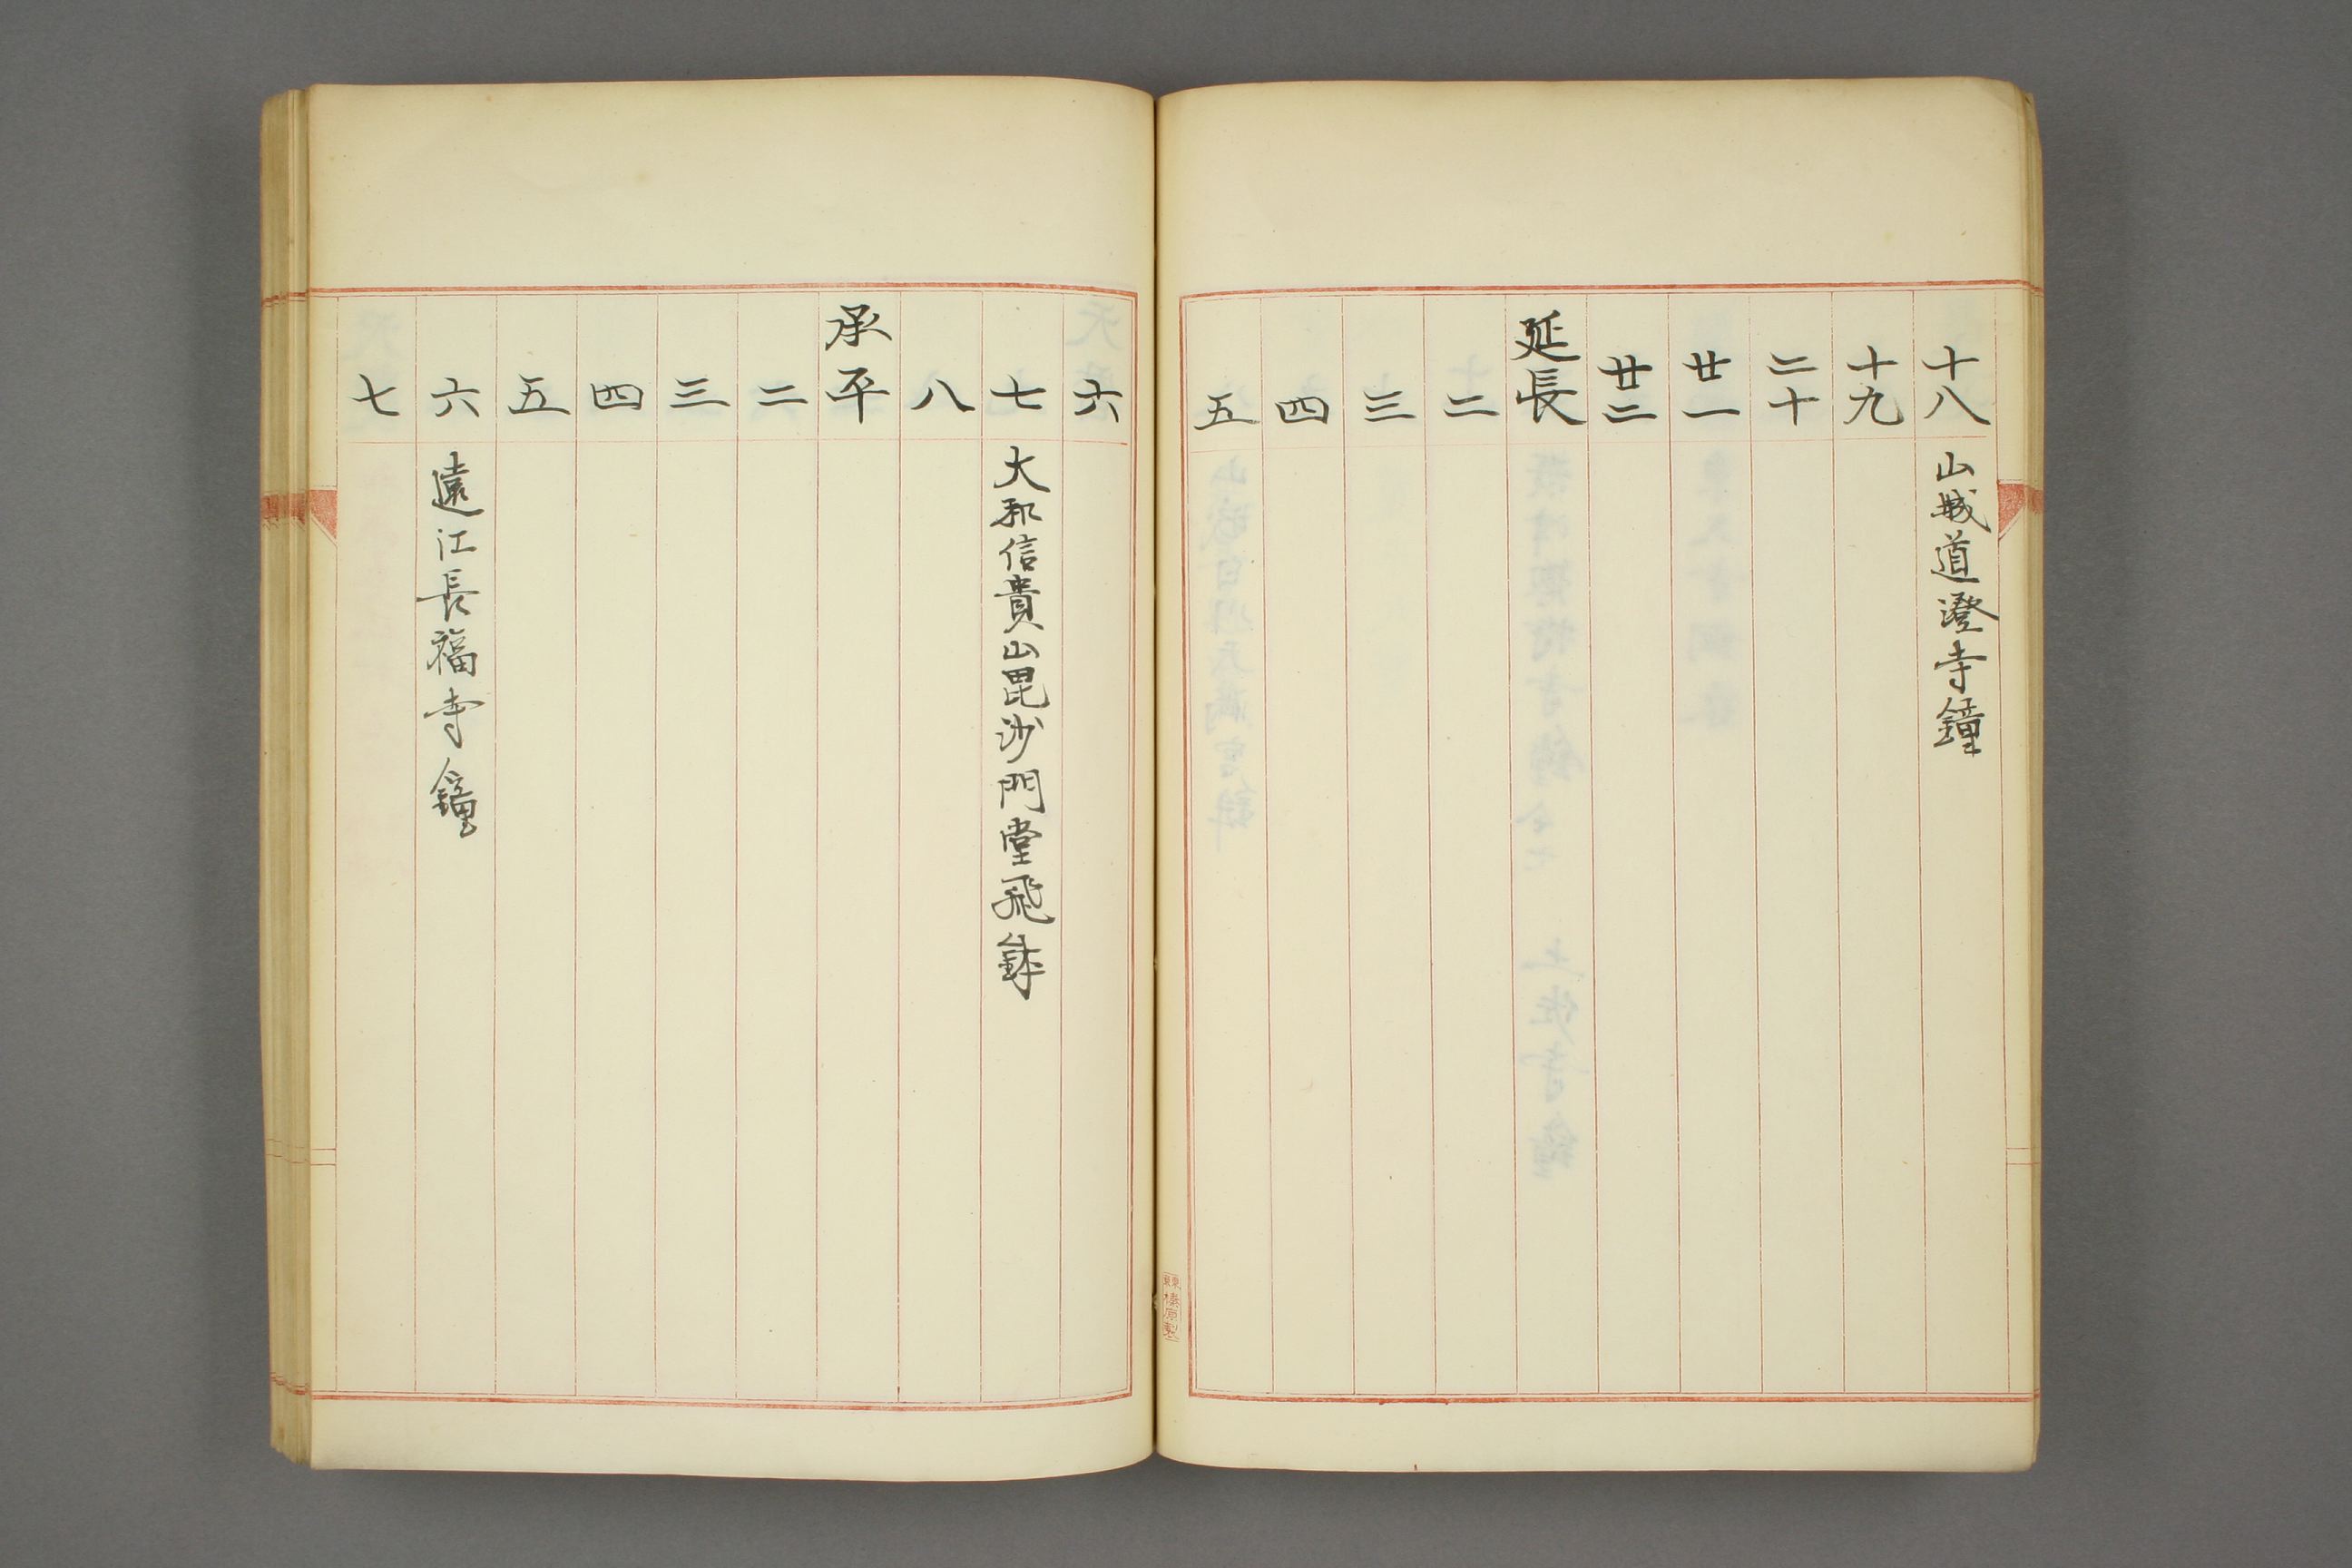 十八 山城道澄寺鐘
十九
二十
廿一
廿二
延長
二
三
四
五
六
七 大和信貴山毘沙門堂飛鉢
八
承平
二
三
四
五
六 遠江長福寺鐘
七
榛原製